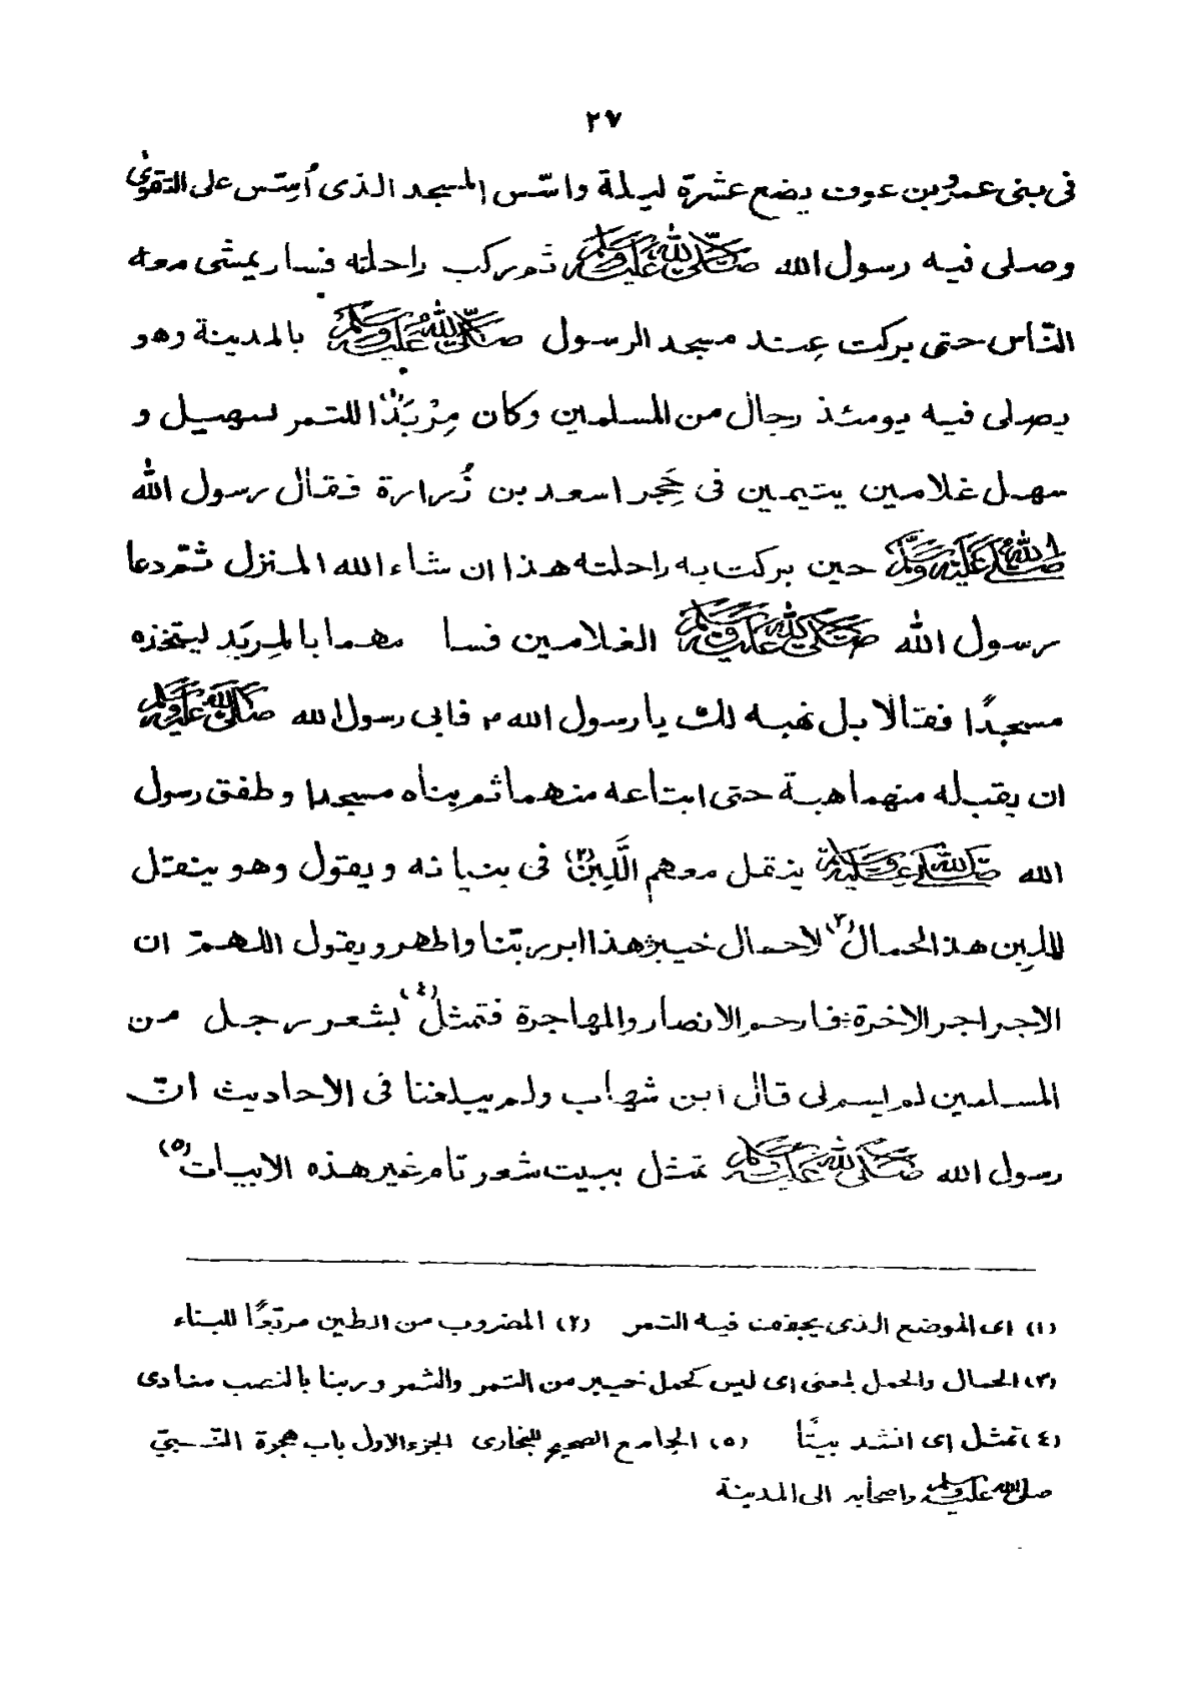 ٢٧
فى بنى عمرو بن عوف بضع عشرة ليلة واسّس المسجد الذى أُسِّس على التقوىٰ
وصلى فيه رسول الله صلى الله عليه وسلم ثم ركب راحلته فسار يمشى معه
النّاس حتى بركت عِند مسجد الرسول صلى الله عليه وسلم بالمدينة وهو
يصلى فيه يومئذ رجال من المسلمين وكان مِرْبَدًا(١) للتمر لسهيل و
سهل غلامين يتيمين فى حَجِر اسعد بن زُرارة فقال رسول الله
صلى الله عليه وسلم حين بركت به راحلته هذا ان شاء الله المنزل ثمّ دعا
رسول الله صلى الله عليه وسلم الغلامين فسا مهما بالمِربَدِ ليتخذه
مسجدًا فقالا بل نهبه لك يا رسول الله م فابى رسول الله صلى الله عليه وسلم
ان يقبله منهما هبة حتى ابتاعه منهما ثم بناه مسجدا وطفق رسول
الله صلى الله عليه وسلم ينقل معهم اللَّبِنَ(٢) فى بنيانه ويقول وهو ينقل
للبن هذا الحمال(٣) لاحمال خيبر هذا ابر ربّنا واطهر ويقول اللهمّ ان
الاجر اجر الاخرة ÷ فارحم الانصار والمهاجرة فتمثل(٤) بشعر رجل من
المسلمين لم يسم لى قال ابن شهاب ولم يبلغنا فى الاحاديث انّ
رسول الله صلى الله عليه وسلم تمثل ببيت شعر تام غير هذه الابيات(٥)
(١) اى الموضع الذى يجفف فيه التمر (٢) المضروب من الطين مربّعًا للبناء
(٣) الحمال والحمل بمعنى اى ليس كحمل خيبر من التمر والثمر وربنا بالنصب منادى
(٤) تمثل اى انشد بيتًا (٥) الجامع الصحيح للبخارى الجزء الاول باب هجرة النّبىّ
صلى الله عليه وسلم واصحابه الى المدينة